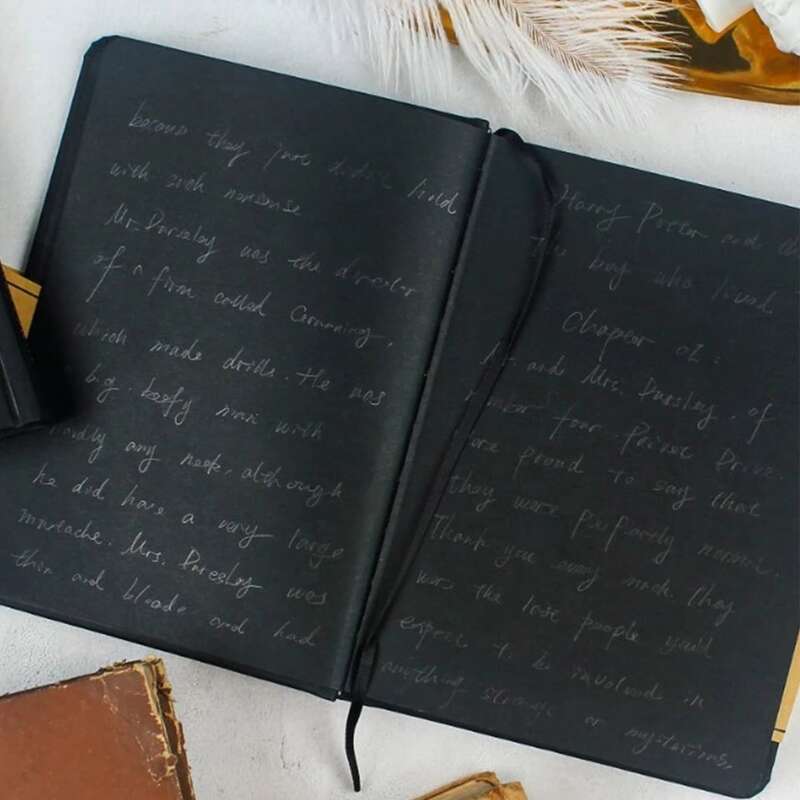 because they just didn't hold
with such nonsense
Mr. Dursley was the director
of a firm called Grunning,
which made drills. He was
big, beefy man with
hardly any neck, although
he did have a very large
mustache. Mrs. Dursley was
thin and blonde and had
Harry Potter and th
The boy who lived
Chapter 01:
Mr. and Mrs. Dursley, of
number four Privet Drive.
were proud to say that
they were perfectly normal.
Thank you very much. They
was the last people you'd
expect to be involved in
anything strange or mysterious,